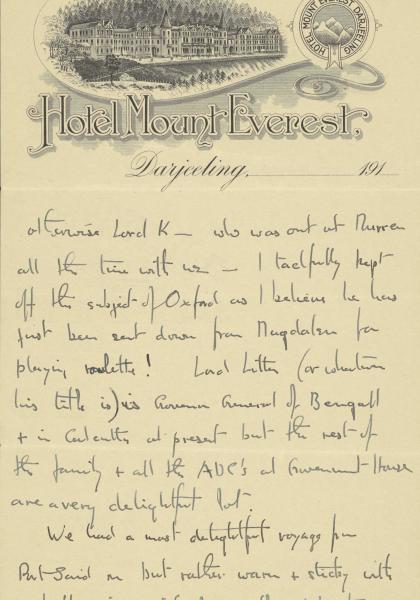 HOTEL MOUNT EVEREST DARJEELING
Hotel Mount Everest,
Darjeeling, 191
otherwise Lord K — who was out at Murren
all the time with us — I tactfully kept
off the subject of Oxford as I believe he has
just been sent down from Magdalen for
playing roulette! Lord Litton (or whatever
his title is) is Governor General of Bengall
+ in Calcutta at present but the rest of
the family + all the ADC's at Government House
are a very delightful lot.
We had a most delightful voyage from
Port Said on but rather warm + sticky with